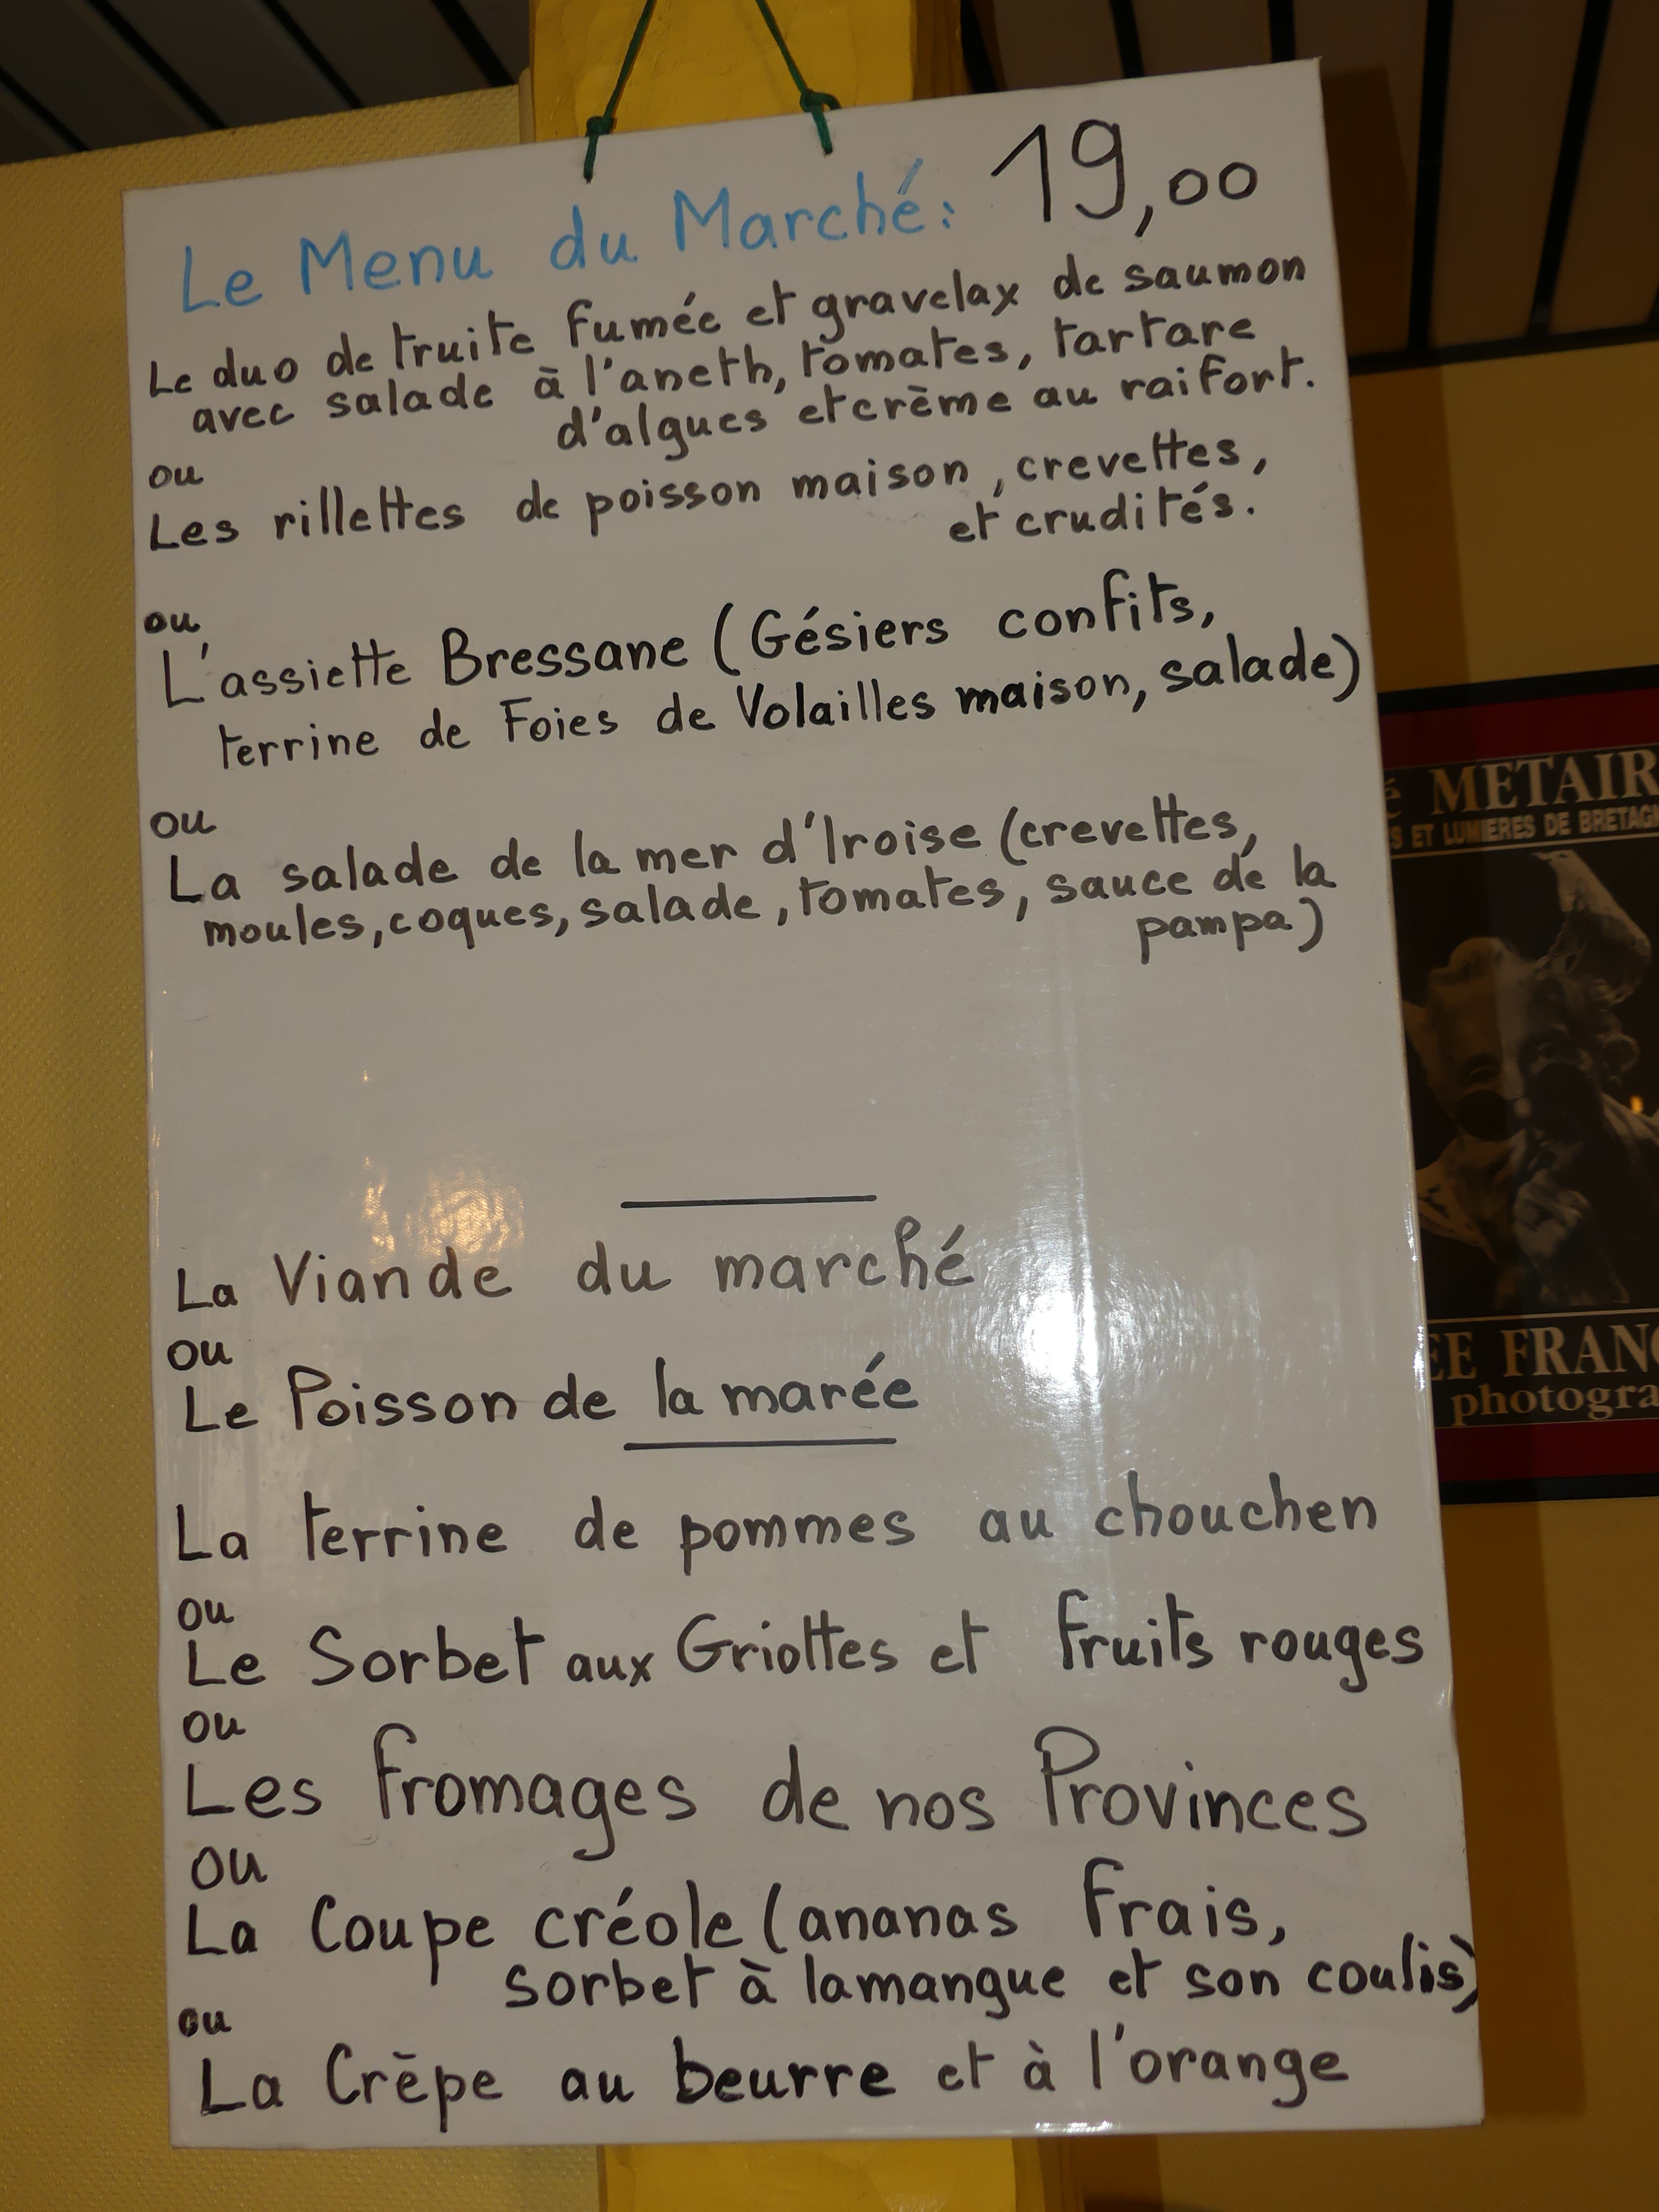 Le Menu du Marché: 19,00
Le duo de truite fumée et gravelax de saumon
avec salade à l'aneth, tomates, tartare
d'algues et crème au raifort.
ou
Les rillettes de poisson maison, crevettes,
et crudités.
ou
L'assiette Bressane (Gésiers confits,
terrine de Foies de Volailles maison, salade)
ou
La salade de la mer d'Iroise (crevettes,
moules, coques, salade, tomates, sauce de la
pampa)
La Viande du marché
ou
Le Poisson de la marée
La terrine de pommes au chouchen
ou
Le Sorbet aux Griottes et fruits rouges
ou
Les fromages de nos Provinces
ou
La Coupe créole (ananas frais,
sorbet à la mangue et son coulis)
ou
La Crêpe au beurre et à l'orange
é METAIR
S ET LUMIERES DE BRETAGN
EE FRANÇ
photogra